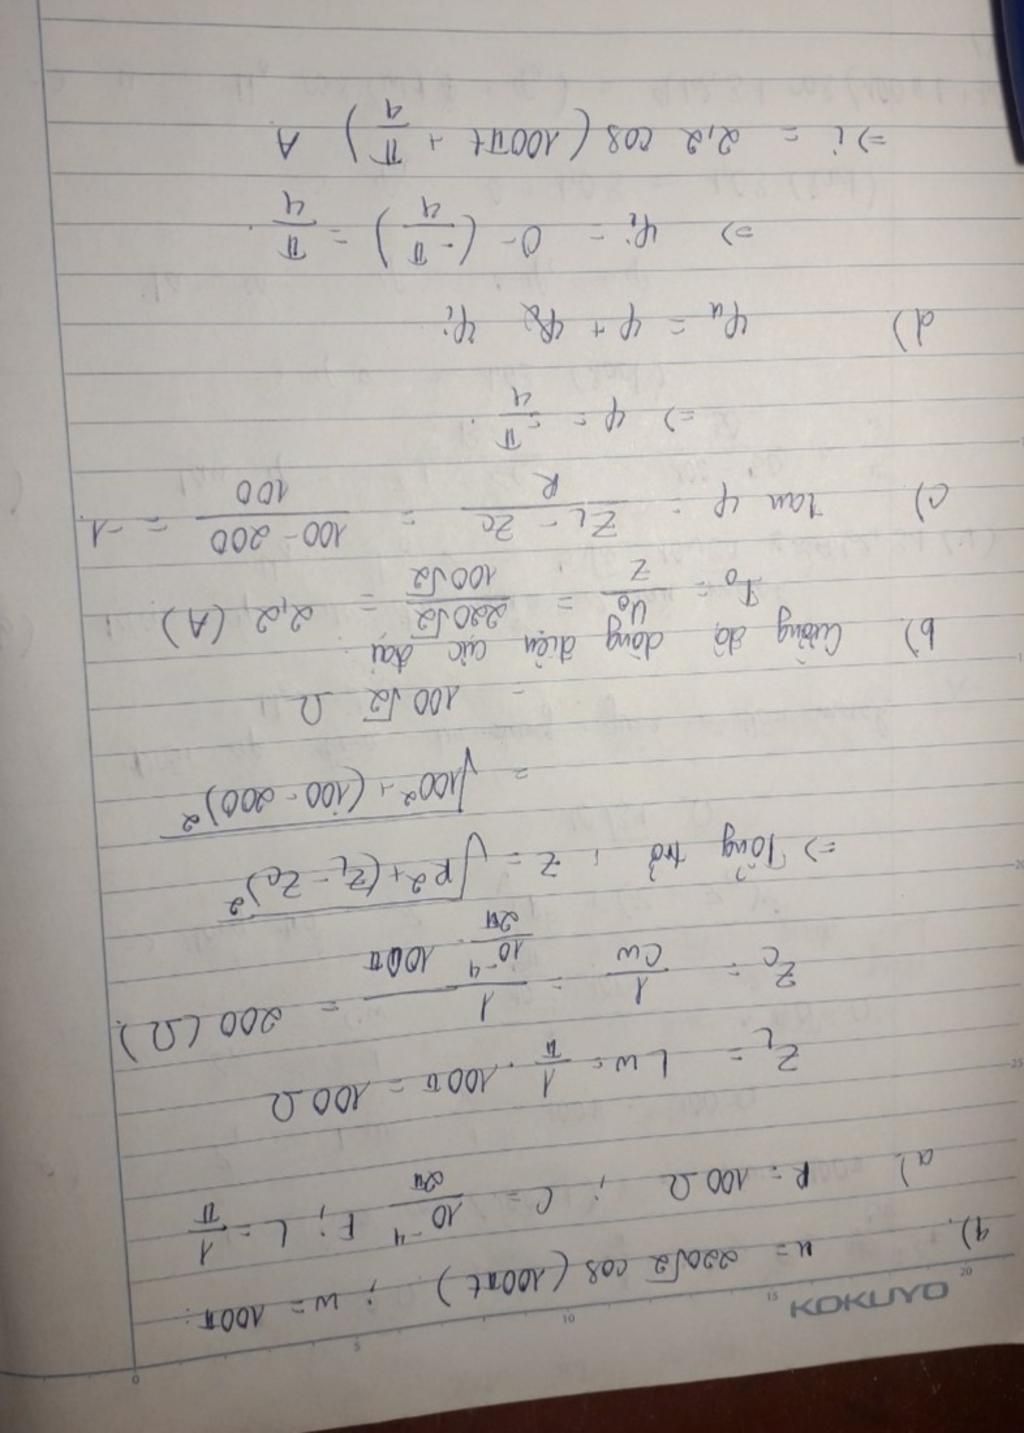 KOKUYO
0 5 10 15 20
4). u = 220√2 cos (100πt) ; w = 100π.
a). R = 100 Ω ; C = 10⁻⁴/2π F; L = 1/π
Z_L = L w = 1/π . 100π = 100 Ω
Z_C = 1/Cw = 1/(10⁻⁴/2π . 100π) = 200 (Ω).
=> Tổng trở : Z = √(R² + (Z_L - Z_C)²)
= √(100² + (100 - 200)²)
= 100√2 Ω
b) Cường độ dòng điện cực đại :
I₀ = U₀/Z = 220√2/100√2 = 2,2 (A)
c) tan φ = (Z_L - Z_C)/R = (100 - 200)/100 = -1
=> φ = -π/4 .
d) φ_u = φ + φ_i
=> φ_i = 0 - (-π/4) = π/4 .
=> i = 2,2 cos (100πt + π/4) A